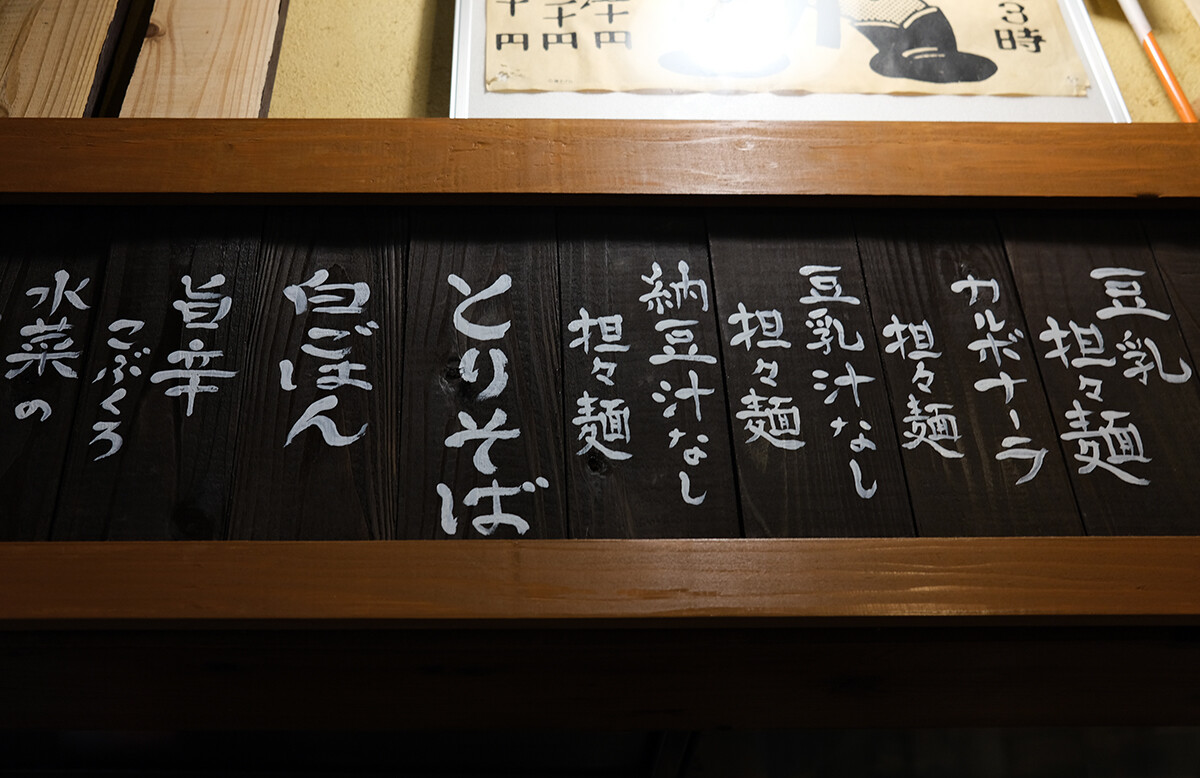 十円
二十円
八十円
3時
豆乳
担々麺
カルボナーラ
担々麺
豆乳汁なし
担々麺
納豆汁なし
担々麺
とりそば
白ごはん
旨辛
こぶくろ
水菜の